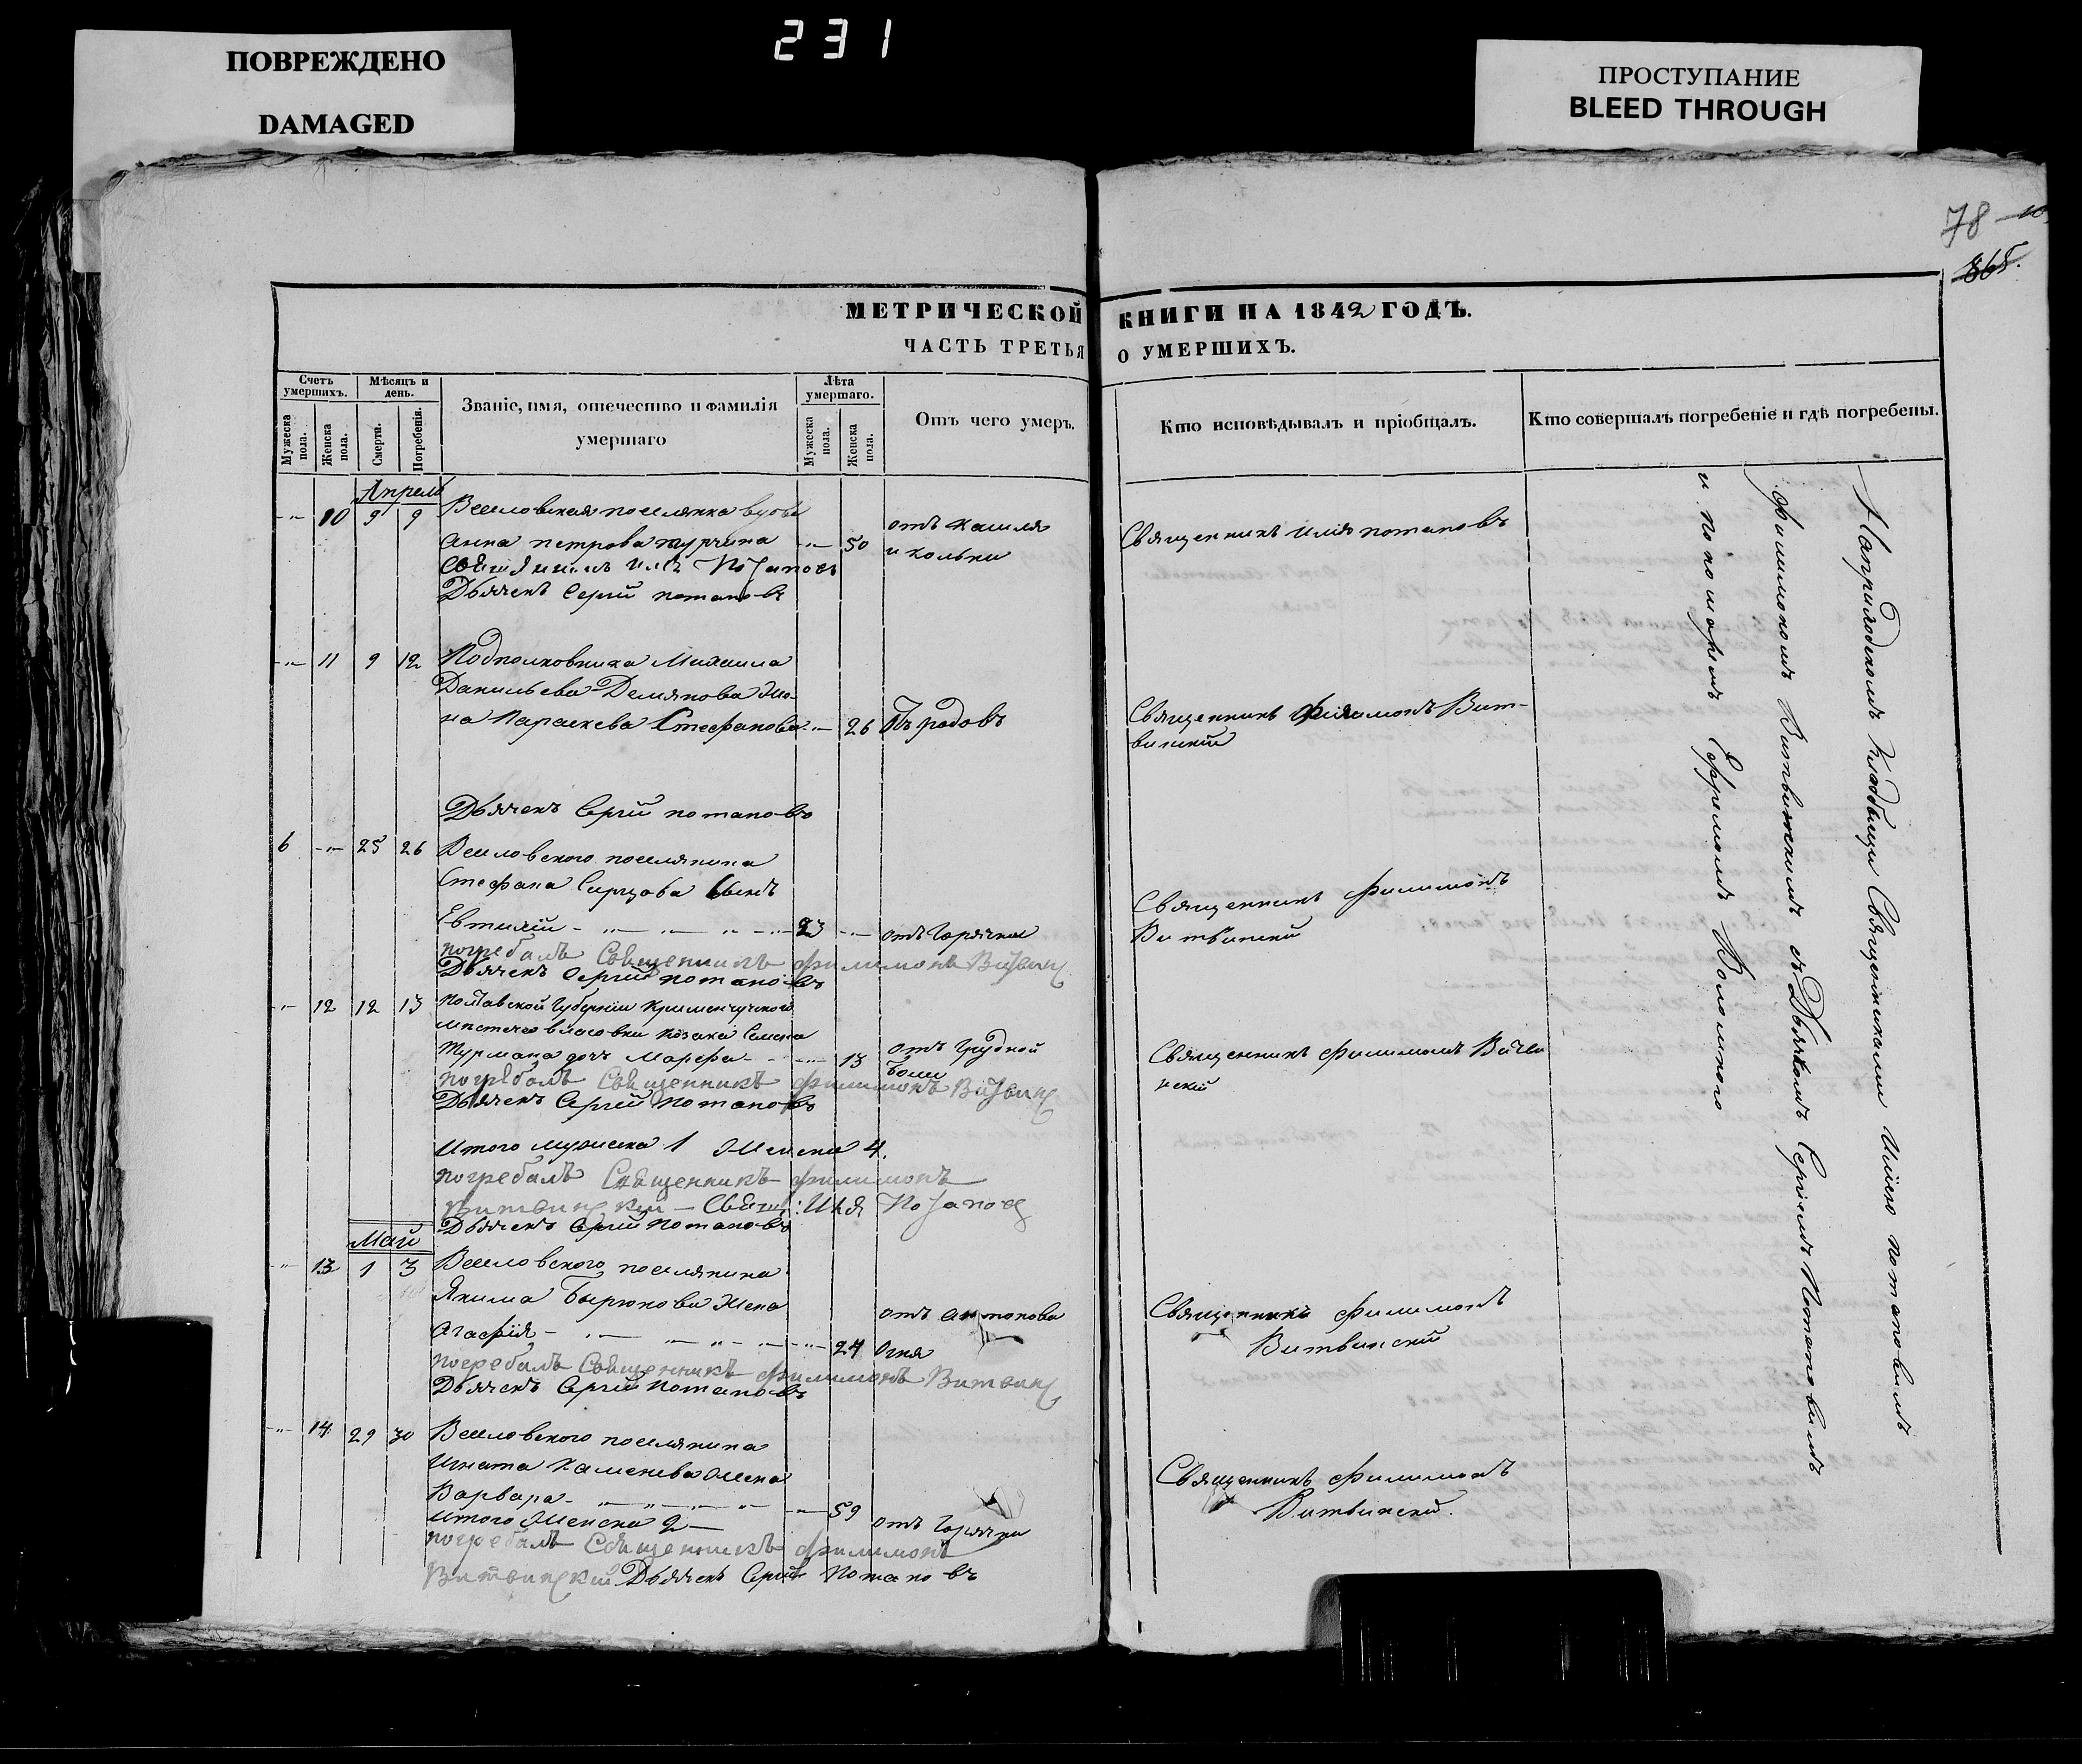 ПОВРЕЖДЕНО
DAMAGED
231
ПРОСТУПАНИЕ
BLEED THROUGH
78
865.
МЕТРИЧЕСКОЙ КНИГИ НА 1842 ГОДЪ.
ЧАСТЬ ТРЕТЬЯ О УМЕРШИХЪ.
Счетъ умершихъ.
Мужеска пола.
Женска пола.
Мѣсяцъ и день.
Смерти.
Погребенія.
Званіе, имя, отечество и фамилія умершаго
Лѣта умершаго.
Мужеска пола.
Женска пола.
Отъ чего умеръ.
Кто исповѣдывалъ и пріобщалъ.
Кто совершалъ погребеніе и гдѣ погребены.
Апрель
10 9 9 Веселовская поселянка вдова
Анна петрова 50 отъ кашля
и кольки
Священникъ Илія потаповъ
Дьячекъ Сергій потаповъ
11 9 12 Подполковника Михаила
Данильева Демянова Же-
на Параскева Стефанова 26 Въ родовъ
Священникъ Филимонъ Вит-
винскій
Дьячекъ Сергій потаповъ
6 25 26 Веселовского поселянина
Стефана Сынъ
Евтихій 23 отъ Горячки
Священникъ филимонъ
Витвинскій
погребалъ Священникъ филимонъ Витвинс
Дьячекъ Сергій потаповъ
12 12 13 Полтавской Губерніи Кременчугского
местечка власовки козака Семена
Турмана дочь Марфа 13 отъ Грудной
боли
Священникъ филимонъ Витви
нскій
погребалъ Священникъ филимонъ Витвинс
Дьячекъ Сергій Потаповъ
Итого мужеска 1 Женска 4.
погребалъ Священникъ филимонъ
Витвинский Свящ: Илія Потапов
Дьячекъ Сергій Потаповъ
Май
13 1 3 Веселовского поселянина
Якима Бирюкова Жена
Агафія 24 отъ антонова
Огня
Священникъ Филимонъ
Витвинскій
погребалъ Священникъ филимонъ Витвинс
Дьячекъ Сергій Потаповъ
14 29 30 Веселовского поселянина
Игната Каменева Жена
Варвара 59 отъ Горячки
Священникъ филимонъ
Витвинскій.
Итого Женска 2
погребалъ Священникъ филимонъ
Витвинский Дьячекъ Сергій Потаповъ
На приходскомъ Кладбищи Священниками Иліею потаповымъ
филимономъ Витвинскимъ съ Дьячкомъ Сергіемъ Потаповымъ
и пономаремъ Ефремомъ